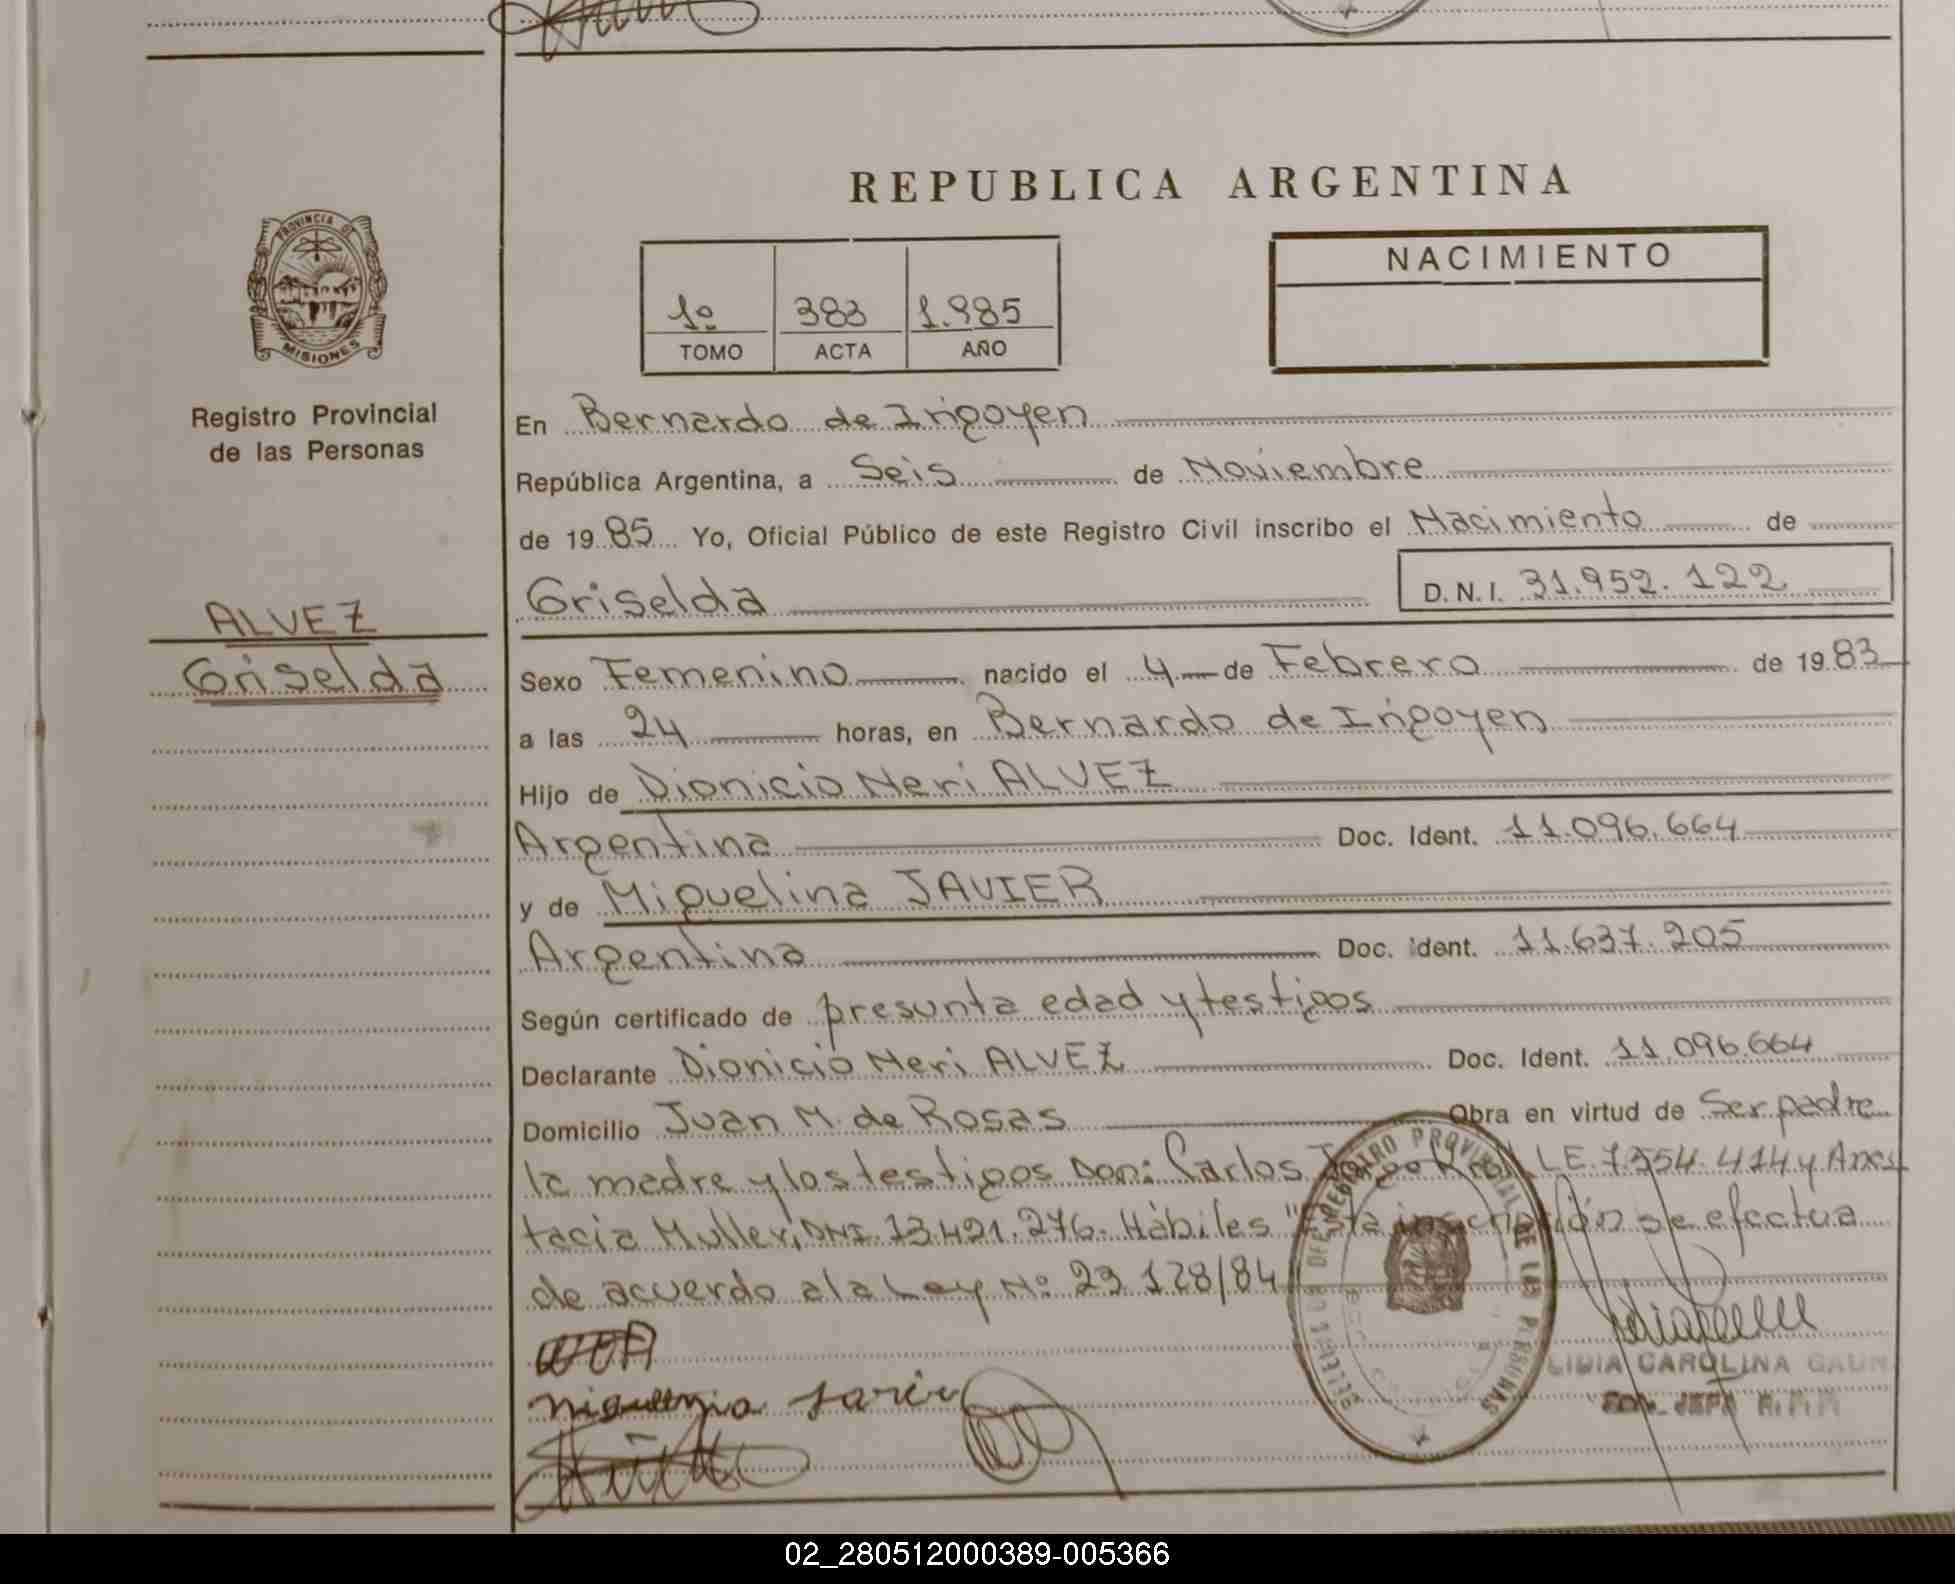 REPUBLICA ARGENTINA
PROVINCIA DE
MISIONES
Registro Provincial
de las Personas
ALVEZ
Griselda
1º 383 1.985
TOMO ACTA AÑO
NACIMIENTO
En Bernardo de Irigoyen
República Argentina, a Seis de Noviembre
de 19 85 Yo, Oficial Público de este Registro Civil inscribo el Nacimiento de
Griselda D.N.I. 31.952.122
Sexo Femenino nacido el 4 de Febrero de 19 83
a las 24 horas, en Bernardo de Irigoyen
Hijo de Dionicio Neri ALVEZ
Argentina Doc. Ident. 11.096.664
y de Miguelina JAVIER
Argentina Doc. Ident. 11.637.205
Según certificado de presunta edad y testigos
Declarante Dionicio Neri ALVEZ Doc. Ident. 11.096.664
Domicilio Juan M. de Rosas Obra en virtud de Ser padre
la madre y los testigos Don: Carlos Jorge LE. 7.554.414 y Anas
tacia Muller, DNI. 13.491.276. Hábiles "Esta inscripción se efectua
de acuerdo a la Ley Nº 23.128/84
REGISTRO PROVINCIAL DE LAS PERSONAS
LIDIA CAROLINA GAUN
JEFA R.P.P.
02_280512000389-005366